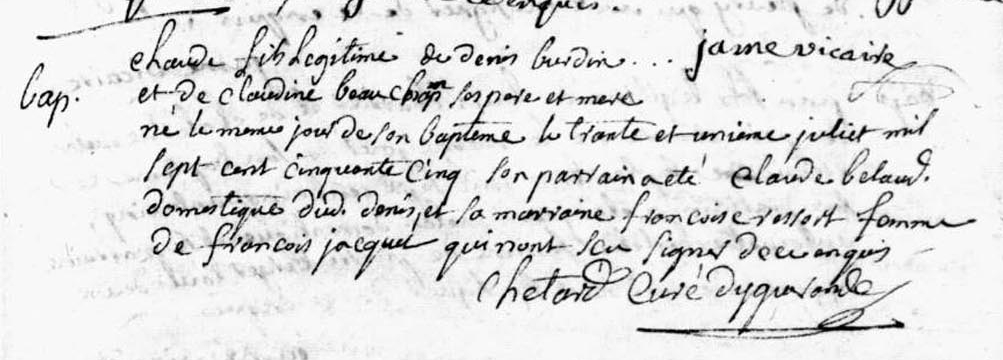 de enquis.
claude fils legitime de denis burdin ... jame vicaire
bap.
et de claudine beauchan ses pere et mere
né le meme jour de son bapteme le trante et unieme juliet mil
sept cent cinquante cinq son parrain a eté claude belaud.
domestique dud. denis, et sa marraine francoise ressort femme
de francois jacquet qui nont sçu signer de ce enquis
Chetard Curé dyguerande